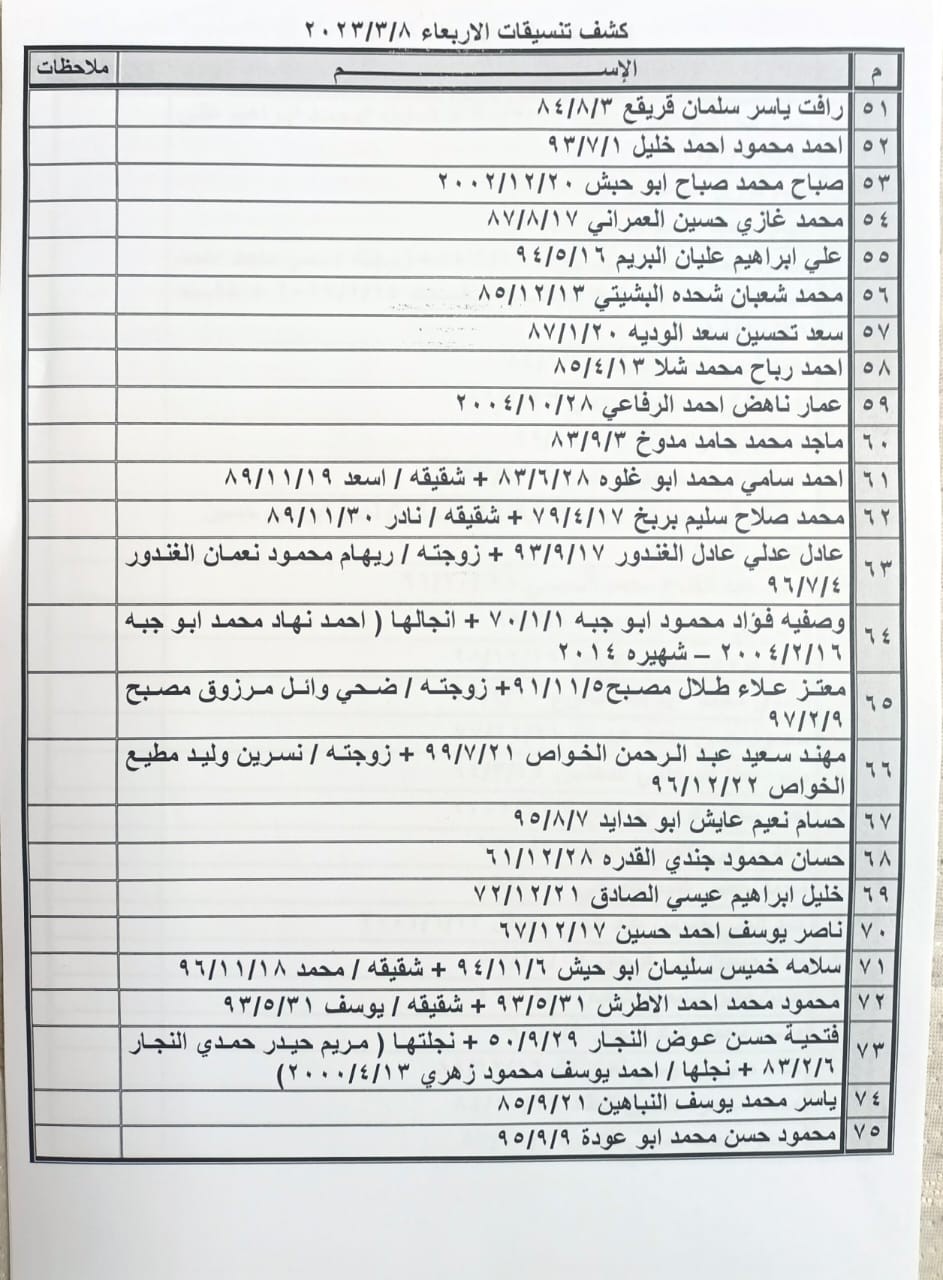 كشف تنسيقات الاربعاء ٢٠٢٣/٣/٨
م الإســـــــــــــــــــــــــم ملاحظات
٥١ رافت ياسر سلمان قريقع ٨٤/٨/٣
٥٢ احمد محمود احمد خليل ٩٣/٧/١
٥٣ صباح محمد صباح ابو حبش ٢٠٠٢/١٢/٢٠
٥٤ محمد غازي حسين العمراني ٨٧/٨/١٧
٥٥ علي ابراهيم عليان البريم ٩٤/٥/١٦
٥٦ محمد شعبان شحده البشيتي ٨٥/١٢/١٣
٥٧ سعد تحسين سعد الوديه ٨٧/١/٢٠
٥٨ احمد رباح محمد شلا ٨٥/٤/١٣
٥٩ عمار ناهض احمد الرفاعي ٢٠٠٤/١٠/٢٨
٦٠ ماجد محمد حامد مدوخ ٨٣/٩/٣
٦١ احمد سامي محمد ابو غلوه ٨٣/٦/٢٨ + شقيقه / اسعد ٨٩/١١/١٩
٦٢ محمد صلاح سليم بربخ ٧٩/٤/١٧ + شقيقه / نادر ٨٩/١١/٣٠
٦٣ عادل عدلي عادل الغندور ٩٣/٩/١٧ + زوجته / ريهام محمود نعمان الغندور
٩٦/٧/٤
٦٤ وصفيه فؤاد محمود ابو جبه ٧٠/١/١ + انجالها ( احمد نهاد محمد ابو جبه
٢٠٠٤/٢/١٦ – شهيره ٢٠١٤
٦٥ معتز علاء طلال مصبح٩١/١١/٥+ زوجته / ضحي وائل مرزوق مصبح
٩٧/٢/٩
٦٦ مهند سعيد عبد الرحمن الخواص ٩٩/٧/٢١ + زوجته / نسرين وليد مطيع
الخواص ٩٦/١٢/٢٢
٦٧ حسام نعيم عايش ابو حدايد ٩٥/٨/٧
٦٨ حسان محمود جندي القدره ٦١/١٢/٢٨
٦٩ خليل ابراهيم عيسي الصادق ٧٢/١٢/٢١
٧٠ ناصر يوسف احمد حسين ٦٧/١٢/١٧
٧١ سلامه خميس سليمان ابو حيش ٩٤/١١/٦ + شقيقه / محمد ٩٦/١١/١٨
٧٢ محمود محمد احمد الاطرش ٩٣/٥/٣١ + شقيقه / يوسف ٩٣/٥/٣١
٧٣ فتحية حسن عوض النجار ٥٠/٩/٢٩ + نجلتها ( مريم حيدر حمدي النجار
٨٣/٢/٦ + نجلها / احمد يوسف محمود زهري ٢٠٠٠/٤/١٣)
٧٤ ياسر محمد يوسف النباهين ٨٥/٩/٢١
٧٥ محمود حسن محمد ابو عودة ٩٥/٩/٩